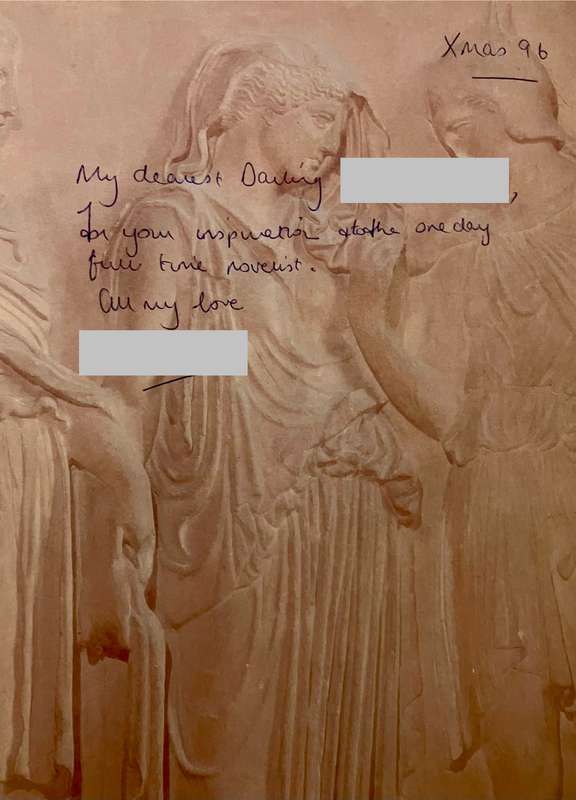 Xmas 96
My dearest Darling ,
for your inspiration to the one day
full time novelist.
All my love